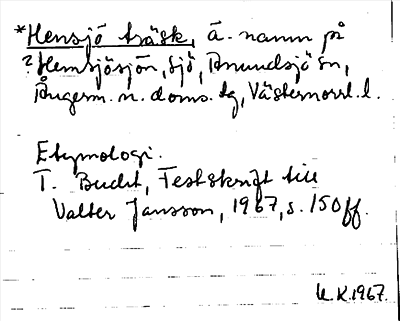 *Hensjö träsk, ä. namn på
?Hemsjösjön, sjö, Anundsjö sn,
Ångerm. n. doms. tg, Västernorrl. l.
Etymologi.
T. Budit, Festskrift till
Valter Jansson, 1967, s. 150 ff.
U.K. 1967.